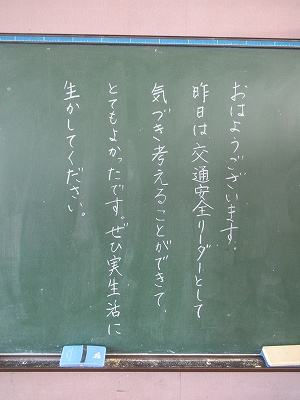 おはようございます。
昨日は交通安全リーダーとして
気づき考えることができて、
とてもよかったです。ぜひ実生活に
生かしてください。